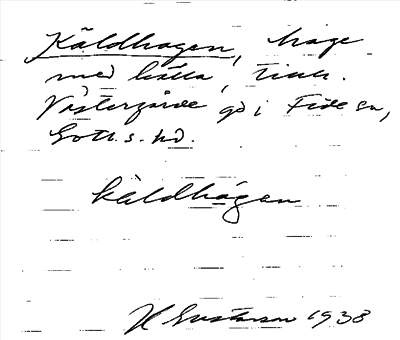 Käldhagen, hage
med källa, tillh.
Västergårde gd i Fide sn,
Gotl. s. hd.
käldhágen
H Gustavson 1938